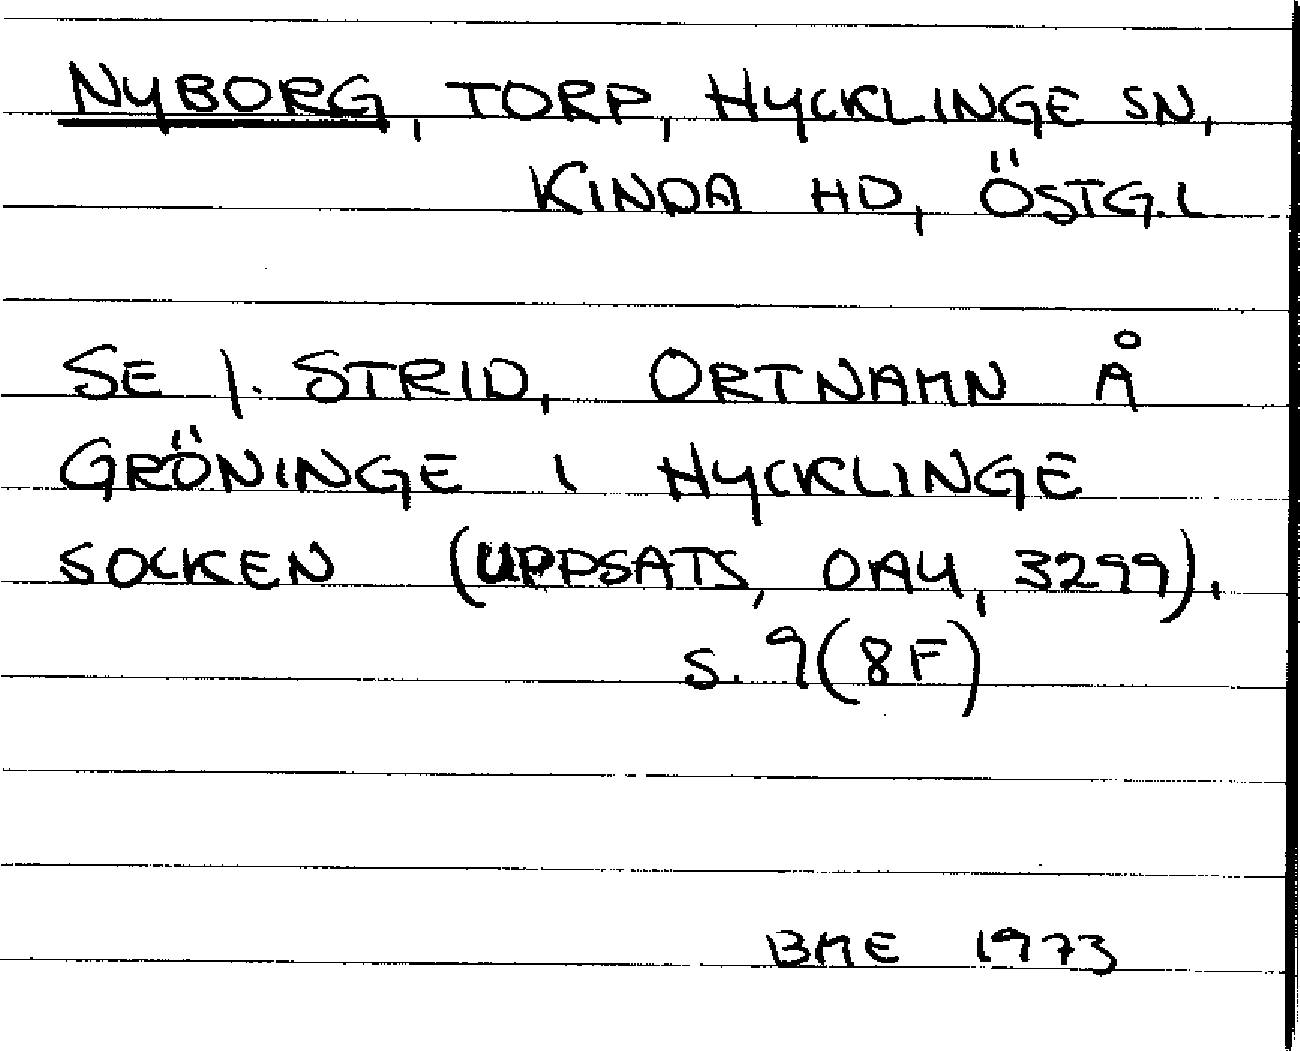 NYBORG, TORP, HYCKLINGE SN,
KINDA HD, ÖSTG.L
SE J. STRID, ORTNAMN Å
GRÖNINGE I HYCKLINGE
SOCKEN (UPPSATS, OAU, 3299).
S. 9(8F)
BME 1973